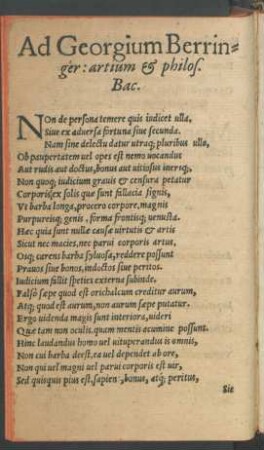 Ad Georgium Berrin-
ger: artium & philos.
Bac.
NOn de persona temere quis iudicet ulla,
Siue ex aduersa fortuna siue secunda.
Nam sine delectu datur utraq; pluribus ulla,
Ob paupertatem uel opes est nemo uocandus
Aut rudis aut doctus, bonus aut uitiosus inersq;,
Non quoq; iudicium grauis & censura petatur
Corporis, ex solis que sunt fallacia signis,
Vt barba longa, procero corpore, magnis
Purpureisq; genis, forma frontisq; uenusta.
Hæc quia sunt nullæ causæ uirtutis & artis
Sicut nec macies, nec parui corporis artus,
Osq; carens barba syluosa, reddere possunt
Prauos siue bonos, indoctos siue peritos.
Iudicium fallit species externa subinde.
Falso sæpe quod est orichalcum creditur aurum,
Atq; quod est aurum, non aurum sæpe putatur.
Ergo uidenda magis sunt interiora, uideri
Quæ tam non oculis quam mentis acumine possunt.
Hinc laudandus homo uel uituperandus is omnis,
Non cui barba deest, ea uel dependet ab ore,
Non qui uel magni uel parui corporis est uir,
Sed quisquis pius est, sapiens, bonus, atq; peritus,
Sic